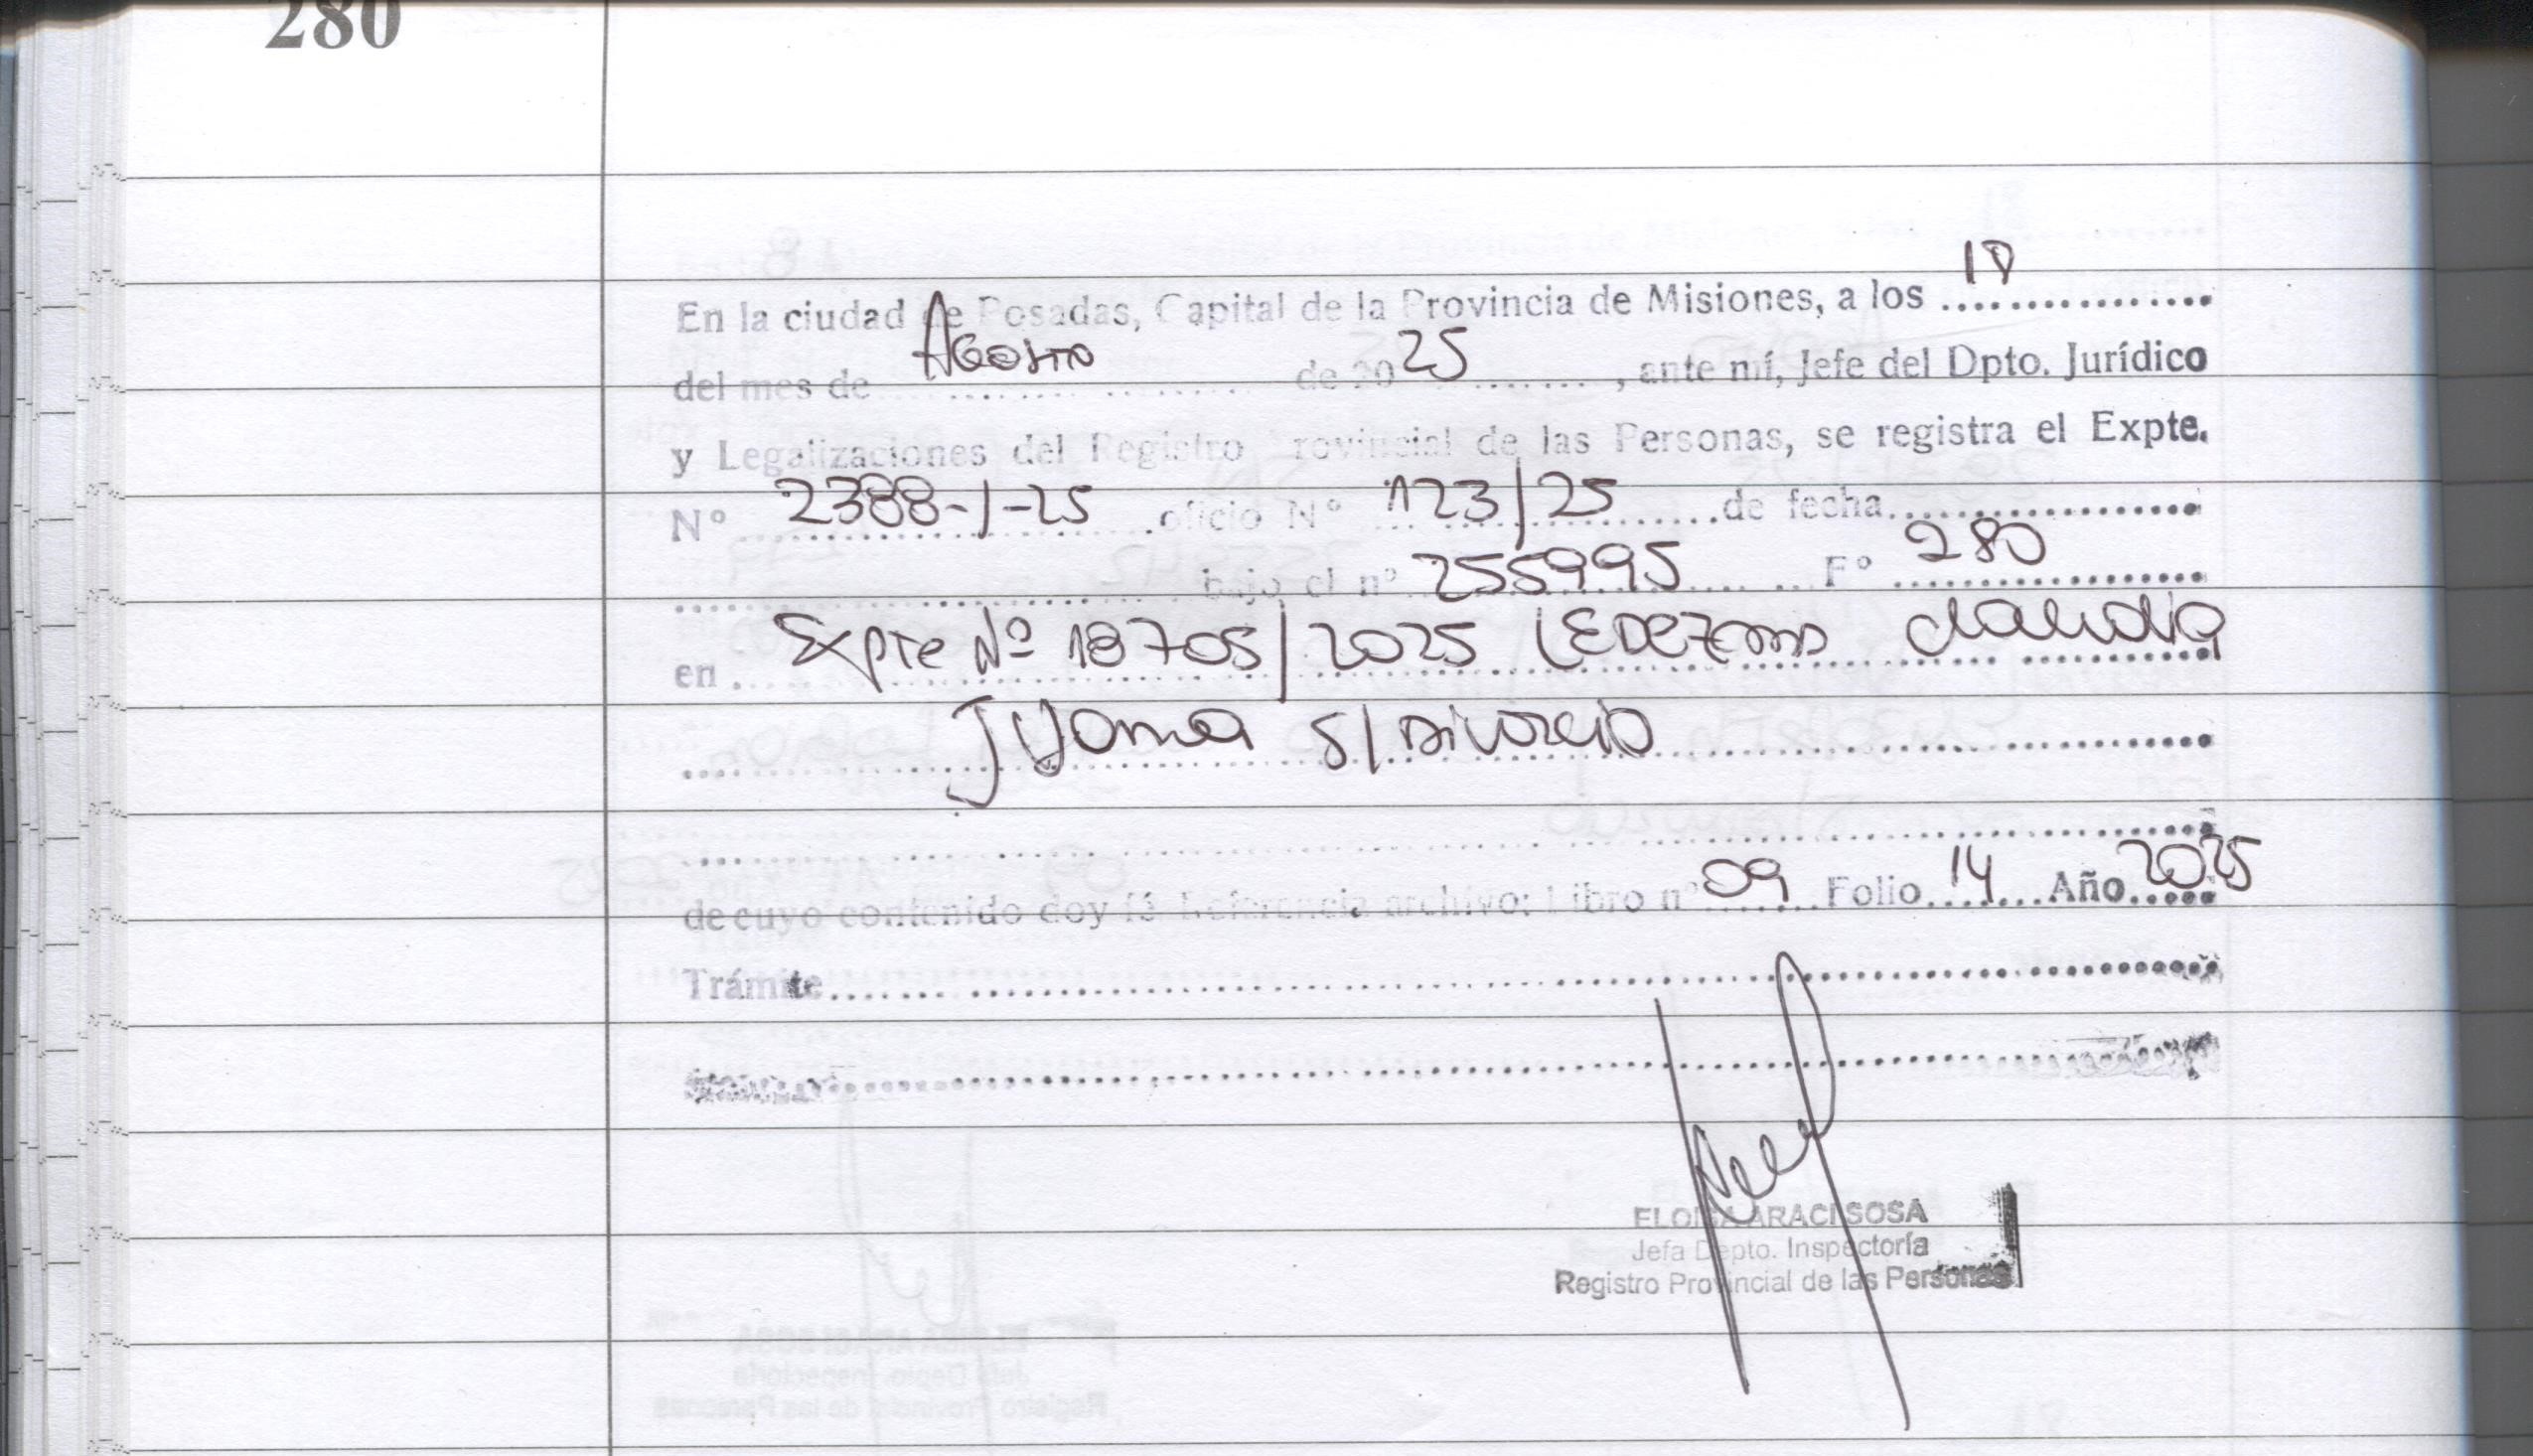 280
En la ciudad de Posadas, Capital de la Provincia de Misiones, a los 18
del mes de Agosto de 2025, ante mí, Jefe del Dpto. Jurídico
y Legalizaciones del Registro Provincial de las Personas, se registra el Expte.
Nº 2388-J-25 oficio Nº 123/25 de fecha
bajo el nº 255995 Fº 280
en Expte Nº 18705/2025 LEDEZMA Claudia
S/ Divorcio
de cuyo contenido doy fé Referencia archivo: Libro nº 09 Folio 14 Año 2025
Trámite
ELOISA ARACI SOSA
Jefa Depto. Inspectoría
Registro Provincial de las Personas